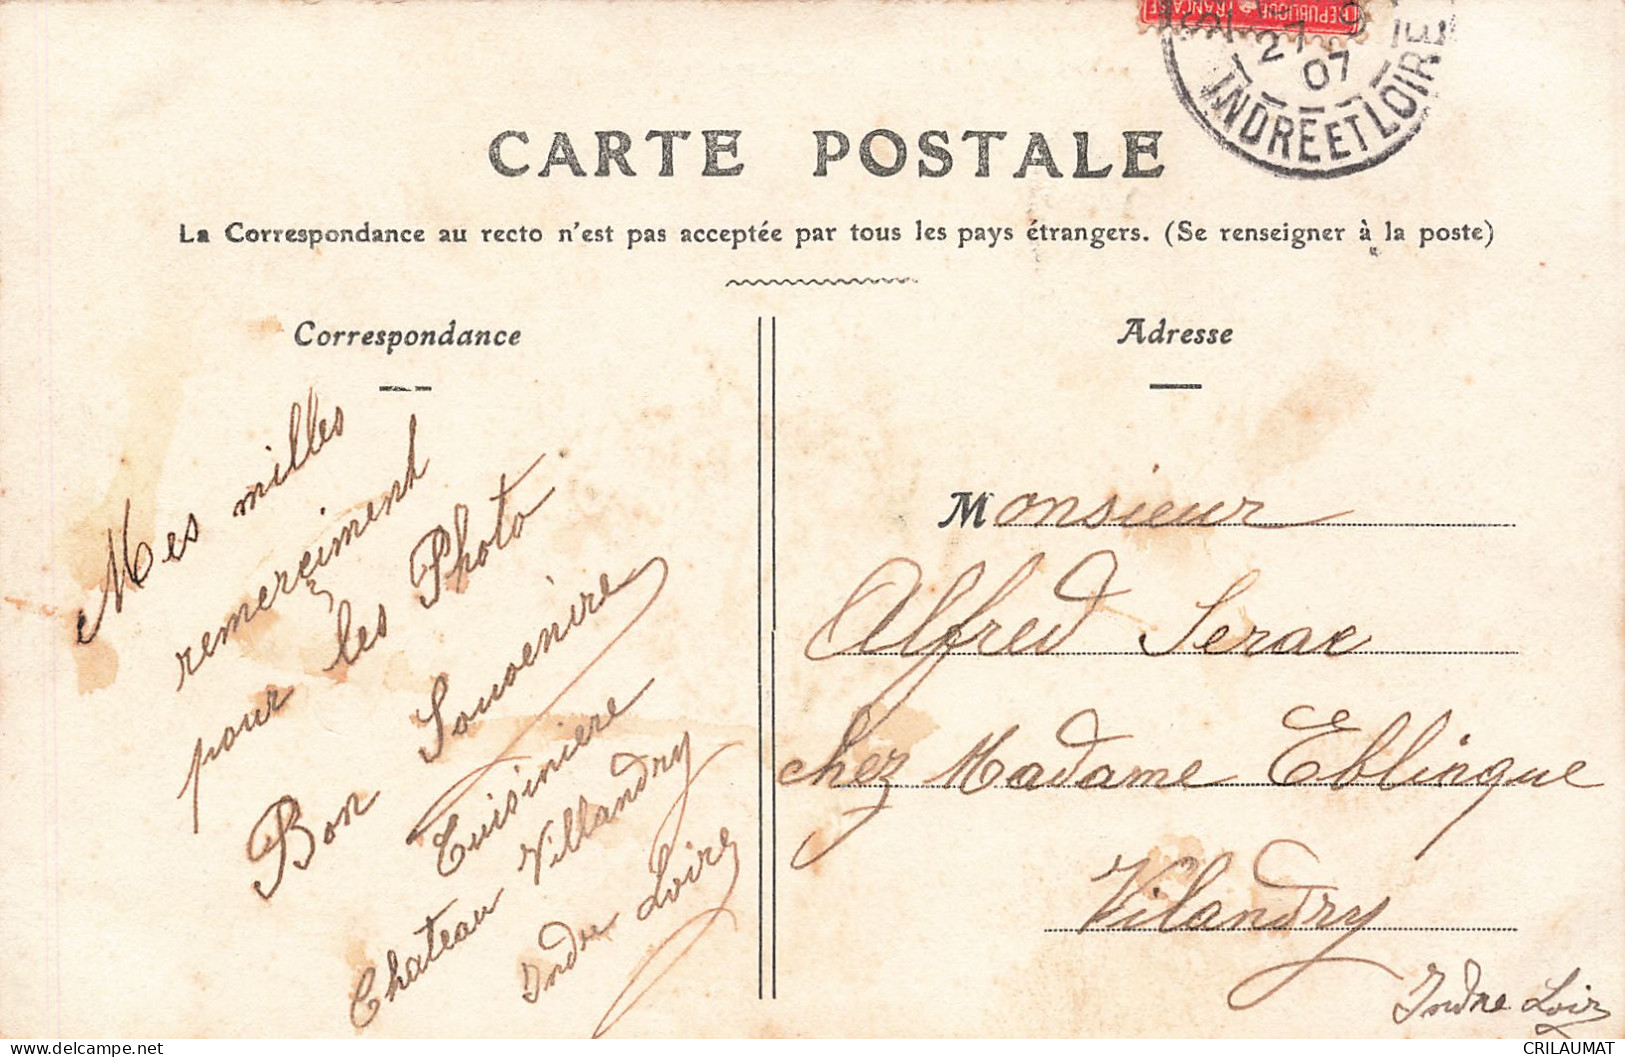 RÉPUBLIQUE FRANÇAISE
27 9
07
INDRE ET LOIRE
CARTE POSTALE
La Correspondance au recto n'est pas acceptée par tous les pays étrangers. (Se renseigner à la poste)
Correspondance
Mes milles
remerçiment
pour les Photo
Bon Souvenire
Cuisiniere
Chateau Villandry
Indre Loire
Adresse
Monsieur
Alfred Serac
chez Madame Eblinque
Vilandry
Indre Loir
CRILAUMAT